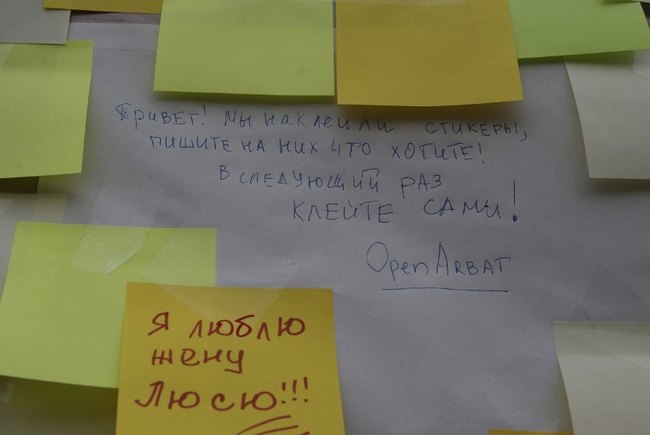 Привет! Мы наклеили стикеры,
пишите на них что хотите!
В следующий раз
клейте сами!
OpenArbat
Я люблю
жену
Люсю!!!